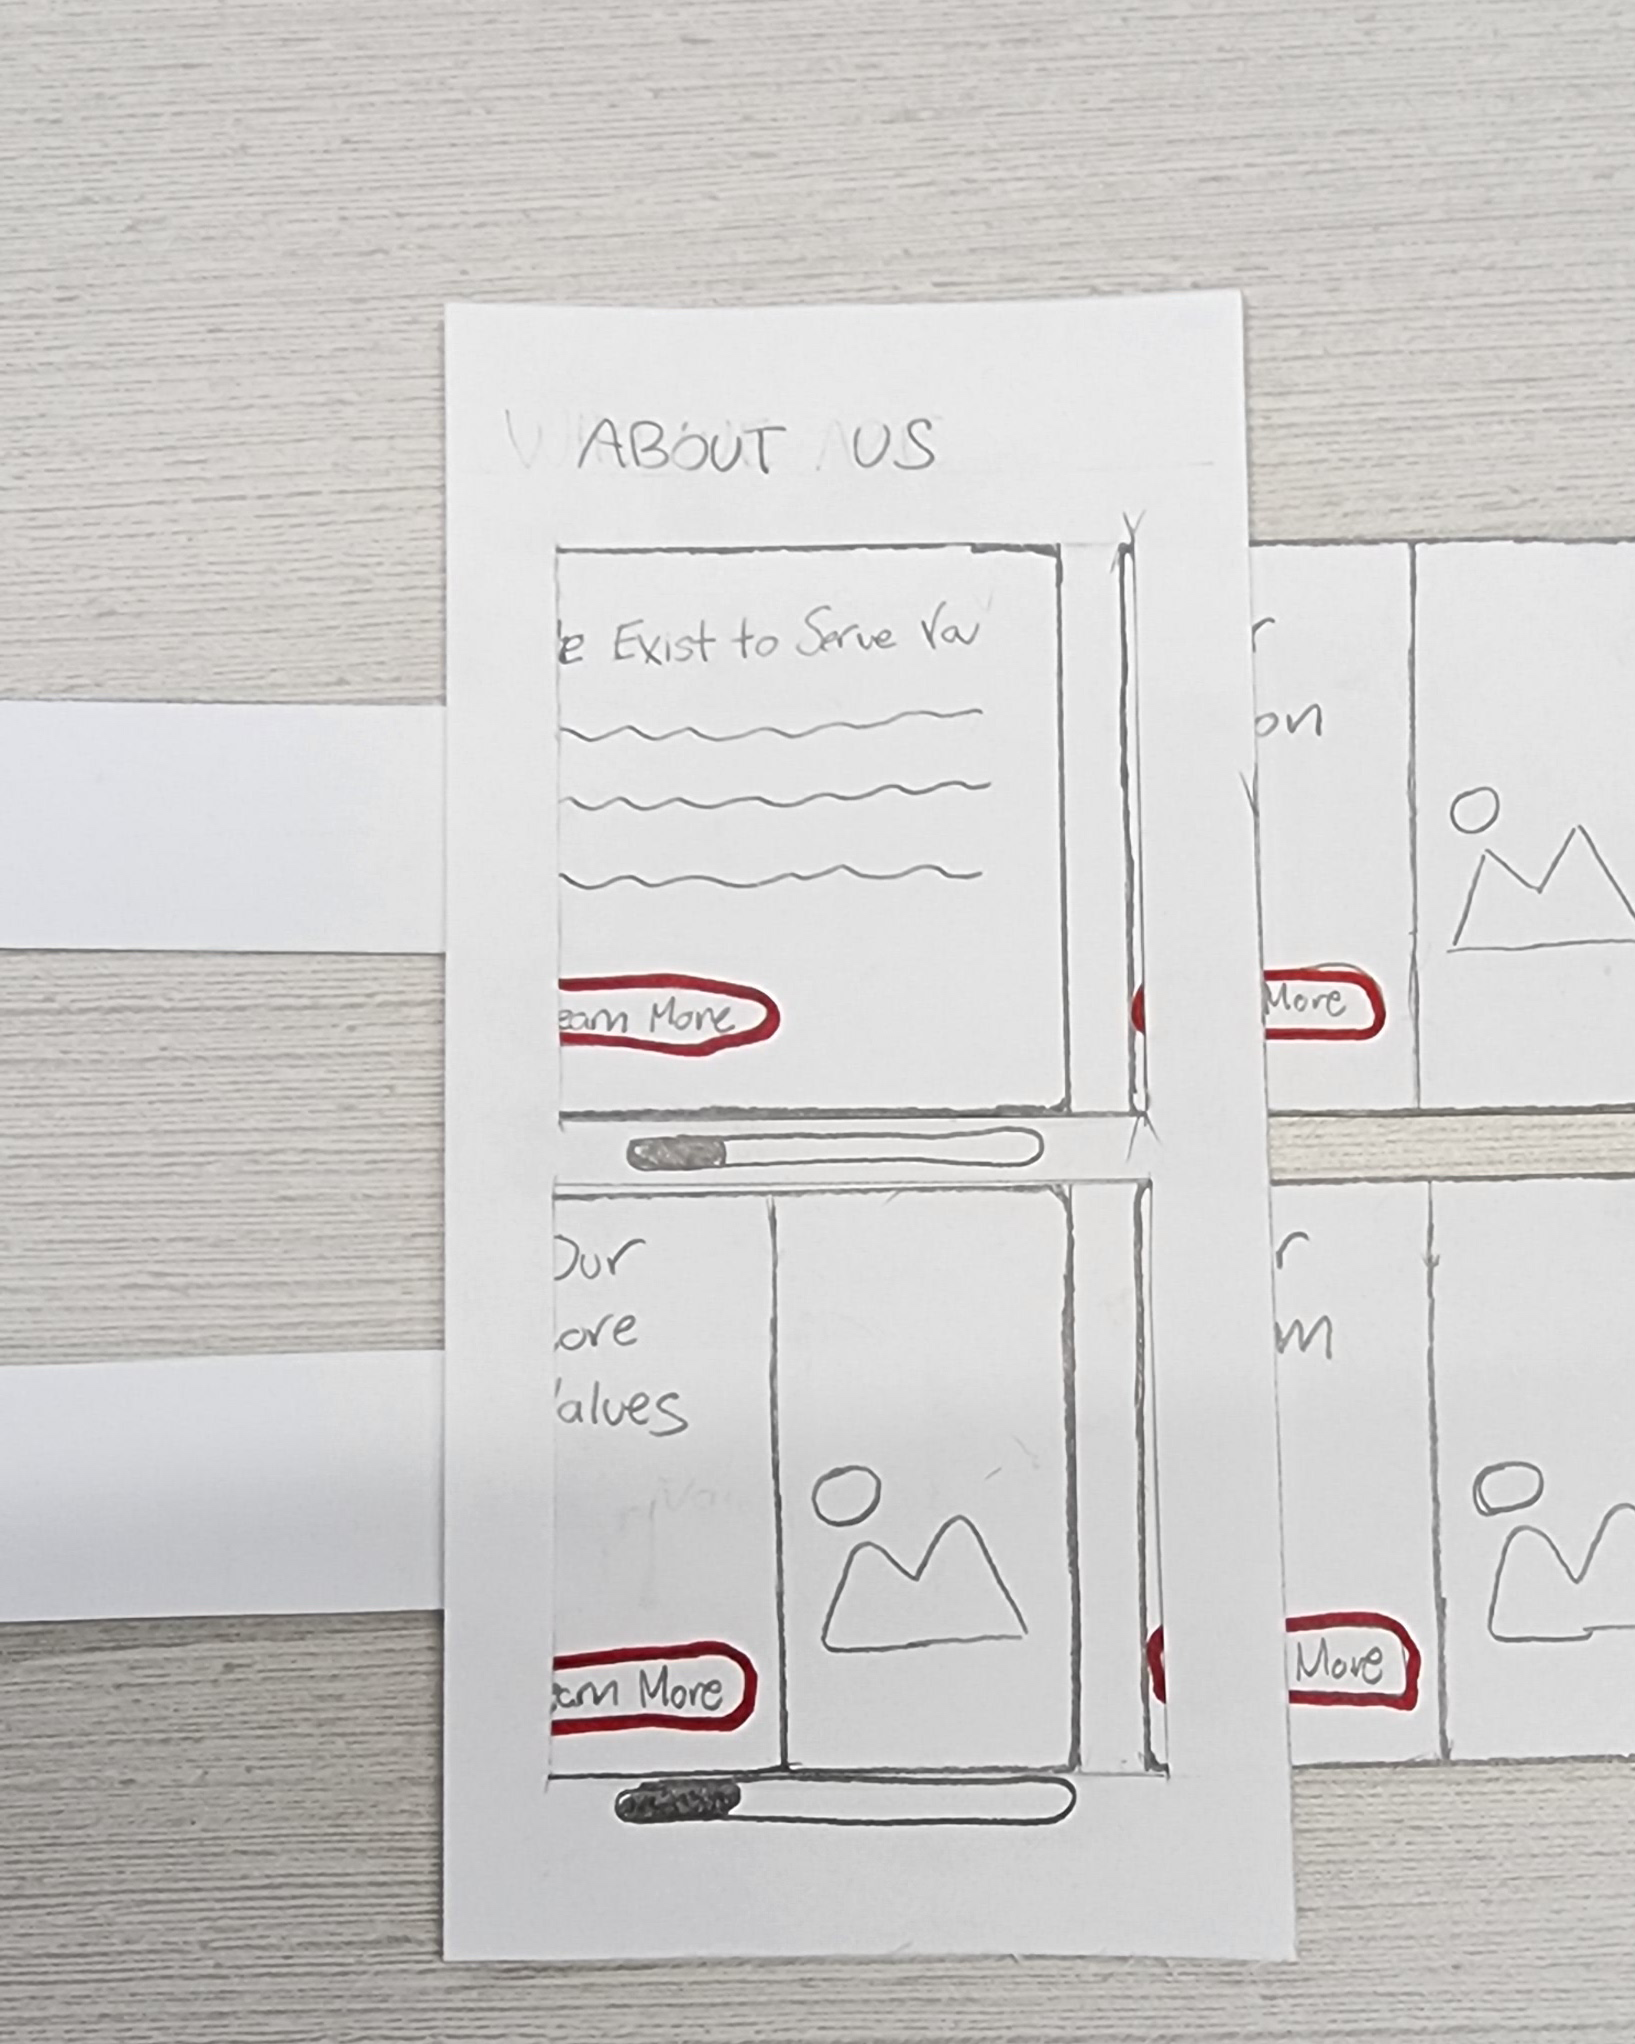 ABOUT US
e Exist to Serve You
earn More
r
on
More
Our
ore
alues
arn More
r
m
More